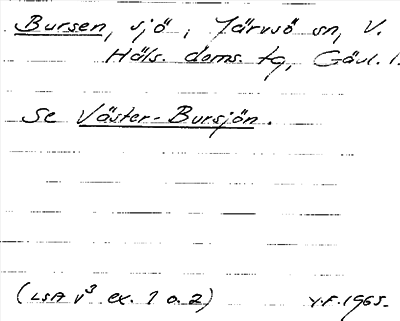 Bursen, sjö i Järvsö sn, V.
Häls. doms. tg, Gävl. l.
Se Väster-Bursjön.
(LSA V³ ex. 1 o. 2) Y.F. 1965.